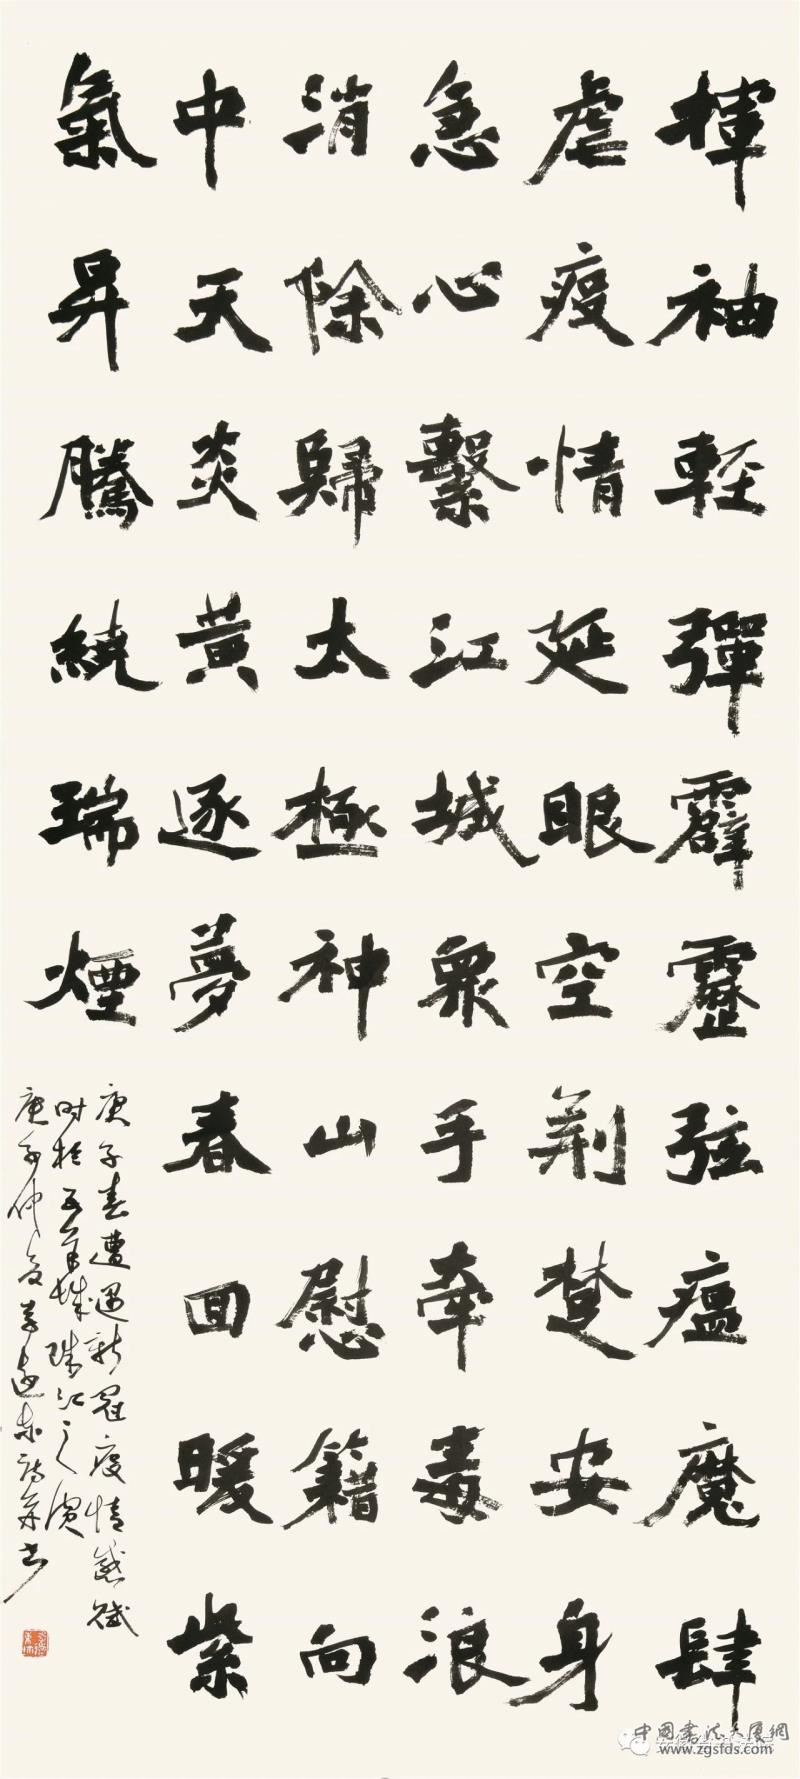 揮袖輕彈霹靂弦瘟魔肆
虐疫情延眼空荆楚安身
急心繫江城衆手牽毒浪
消除歸太極神山慰籍向
中天炎黄逐夢春回暖紫
氣昇騰繞瑞煙
庚子春遭遇新冠疫情感賦
时於五羊城珠江之濱
庚子仲夏李遠东詩并书
中國書法大厦網
www.zgsfds.com